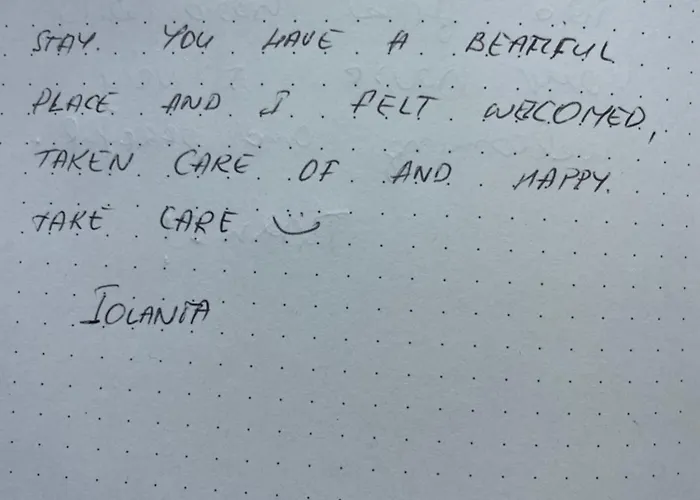 STAY. YOU HAVE A BEATIFUL
PLACE AND I FELT WELCOMED,
TAKEN CARE OF AND HAPPY.
TAKE CARE
IOLANTA